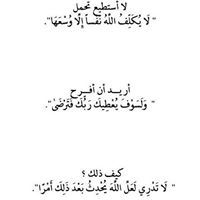 لا أستطيع تحمل
" لَا يُكَلِّفُ اللَّهُ نَفْساً إِلَّا وُسْعَهَا".
أريد أن أفرح
" وَلَسَوْفَ يُعْطِيكَ رَبُّكَ فَتَرْضَىٰ".
كيف ذلك ؟
" لَا تَدْرِي لَعَلَّ اللَّهَ يُحْدِثُ بَعْدَ ذَٰلِكَ أَمْرًا".